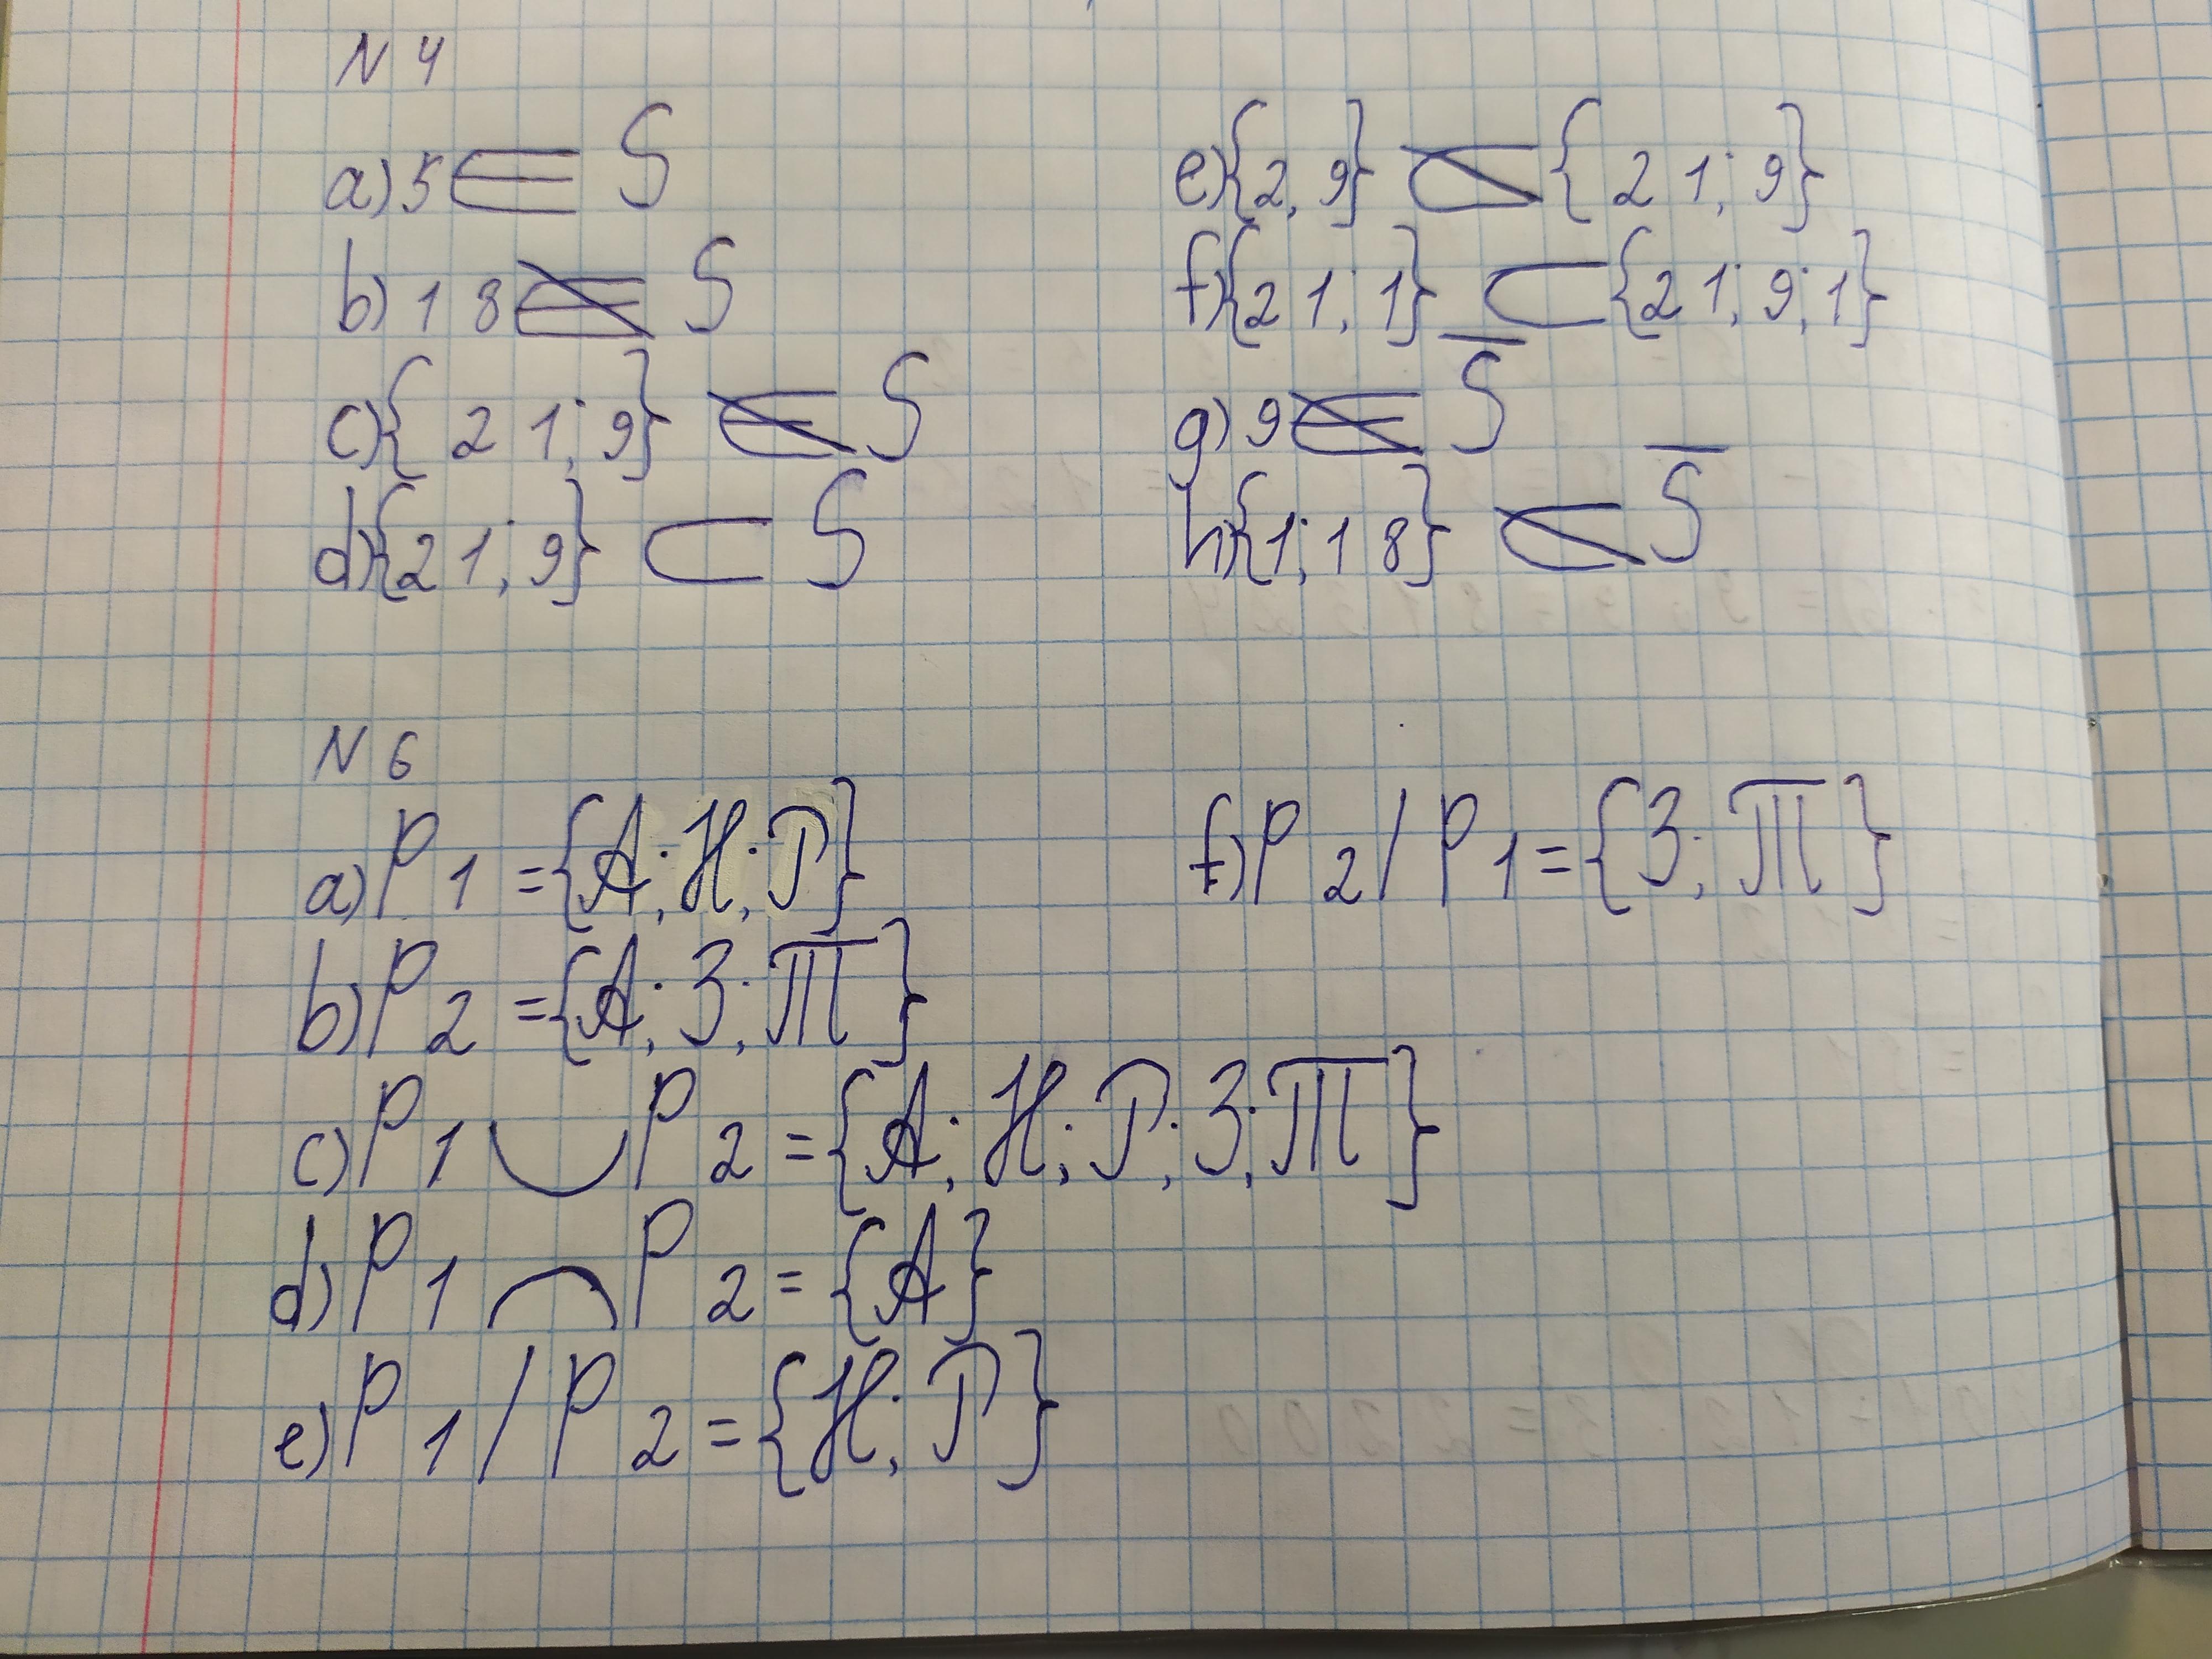 N 4
a) 5 ∈ S
b) 18 ∉ S
c) {21; 9} ∉ S
d) {21; 9} ⊂ S
e) {2, 9} ⊄ {21; 9}
f) {21; 1} ⊂ {21; 9; 1}
g) 9 ∉ S̅
h) {1; 18} ⊄ S̅
N 6
a) P1 = {А; Н; Р}
b) P2 = {А; З; П}
c) P1 ∪ P2 = {А; Н; Р; З; П}
d) P1 ∩ P2 = {А}
e) P1 / P2 = {Н; Р}
f) P2 / P1 = {З; П}